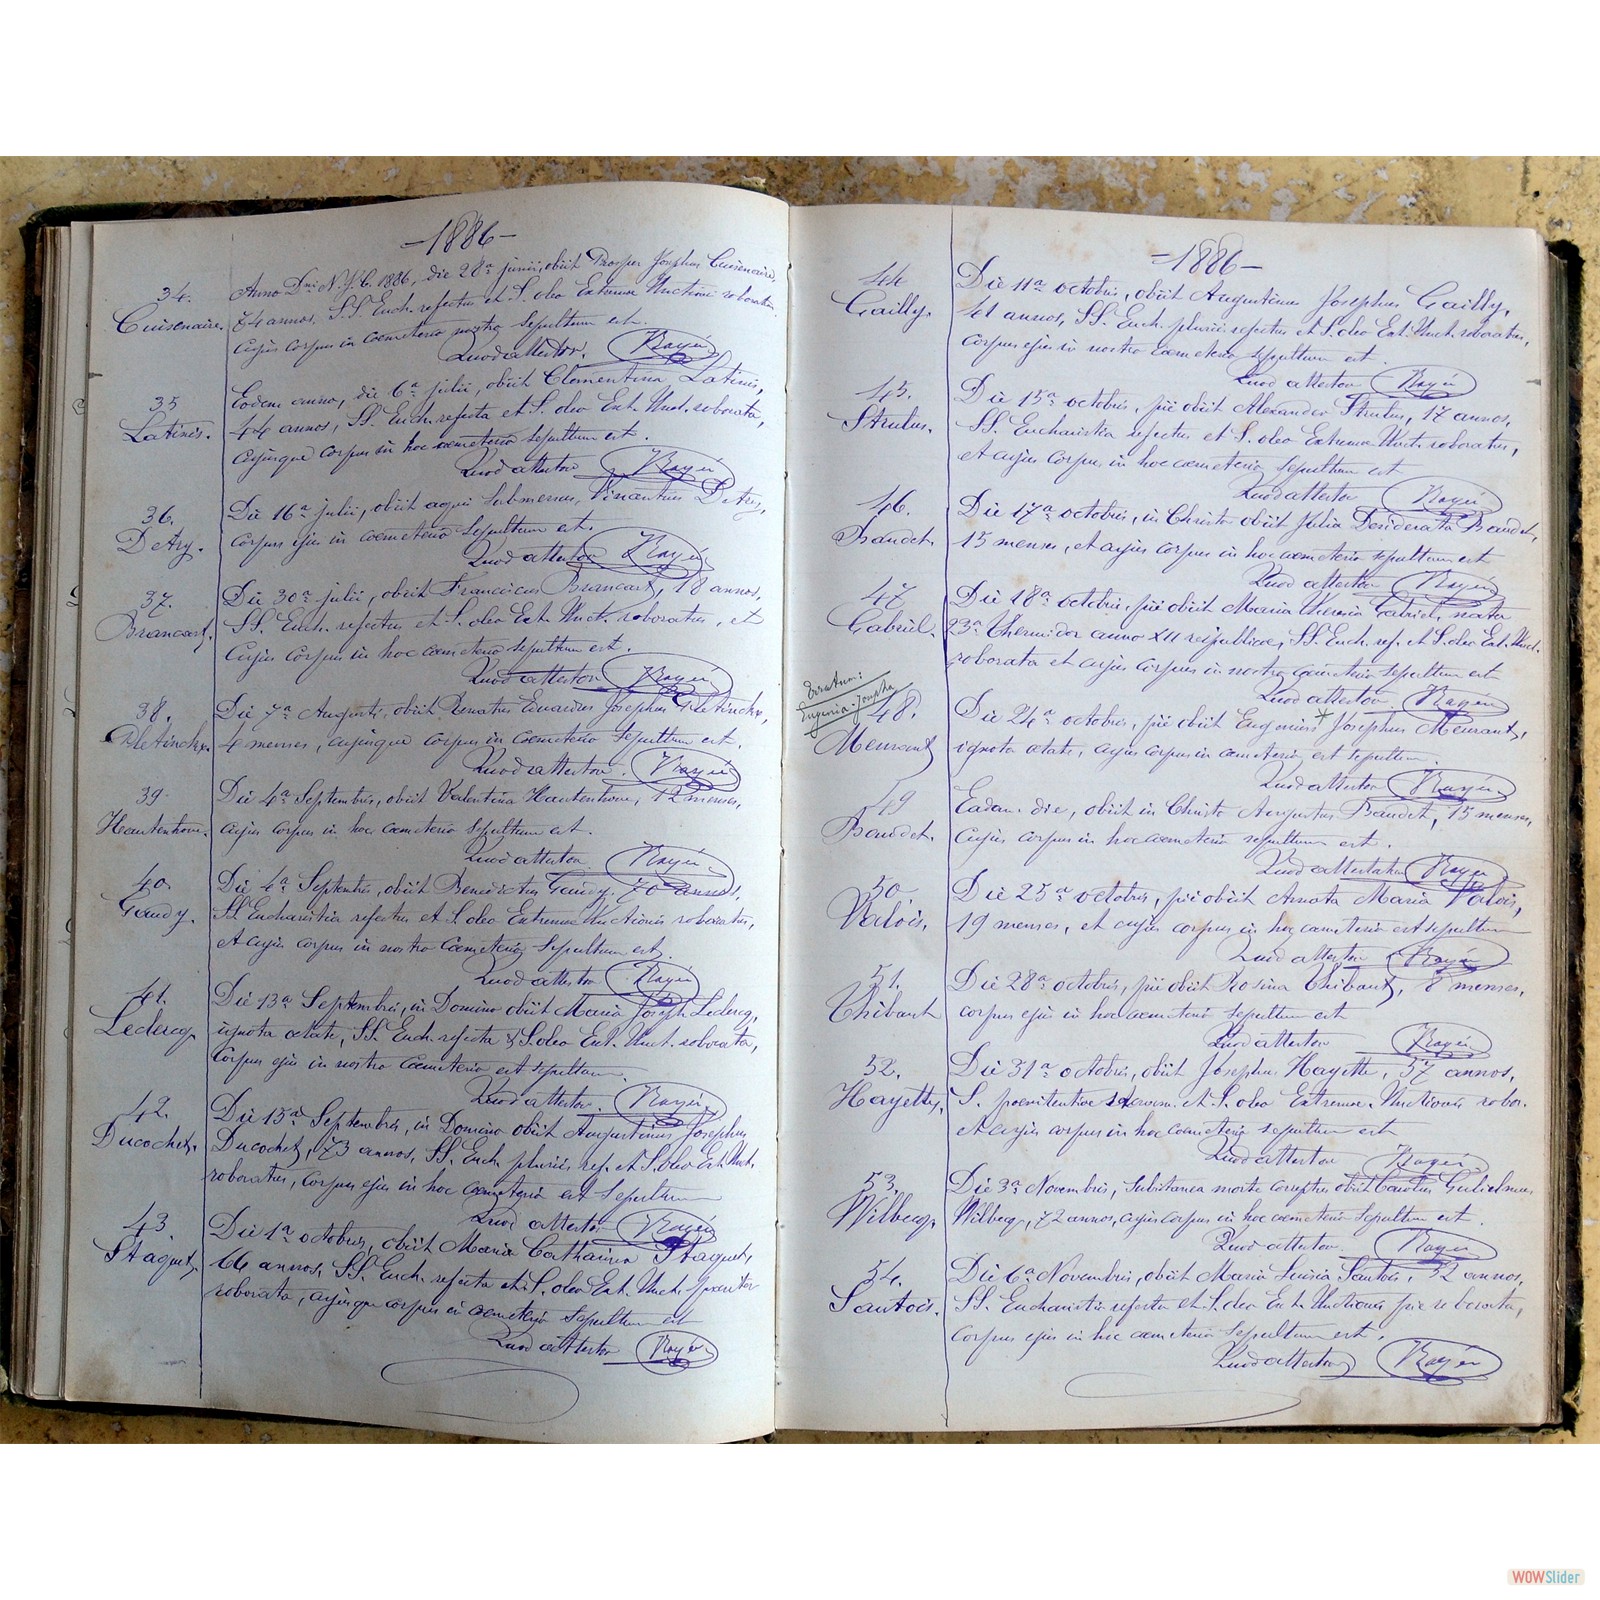 -1886-
34.
Cuisenaire.
Anno Dni N. J. C. 1886, die 28a junii, obiit Prosper Josephus Cuisenaire,
74 annos, SS. Euch. refectus et S. oleo Extremæ Unctionis roboratus
cujus corpus in cœmeterio nostro sepultum est.
Quod attestor.
35
Latinis.
Eodem anno, die 6a julii, obiit Clementina Latinis,
44 annos, SS. Euch. refecta et S. oleo Ext. Unct. roborata,
cujusque corpus in hoc cœmeterio sepultum est.
Quod attestor
36.
Detry.
Die 16a julii, obiit aqua submersus, Detry,
corpus ejus in cœmeterio sepultum est.
Quod attestor
37.
Brancart.
Die 30a julii, obiit Franciscus Brancart, 18 annos,
SS. Euch. refectus et S. oleo Ext. Unct. roboratus, et
cujus corpus in hoc cœmeterio sepultum est.
Quod attestor
38.
Die 7a Augusti, obiit Renatus Eduardus Josephus
4 menses, cujusque corpus in cœmeterio sepultum est.
Quod attestor.
39.
Hautenhove.
Die 4a Septembris, obiit Valentina Hautenhove, 12 menses,
cujus corpus in hoc cœmeterio sepultum est.
Quod attestor
40.
Gaudy.
Die 4a Septembris, obiit Benedictus Gaudy, 70 annos,
SS. Eucharistia refectus et S. oleo Extremæ Unctionis roboratus,
et cujus corpus in nostro cœmeterio sepultum est.
Quod attestor
41.
Leclercq
Die 13a Septembris, in Domino obiit Maria Joseph Leclercq,
ignota ætate, SS. Euch. refecta & S. oleo Ext. Unct. roborata,
corpus ejus in nostro cœmeterio est sepultum.
Quod attestor.
42.
Ducochet.
Die 15a Septembris, in Domino obiit Augustinus Josephus
Ducochet, 73 annos, SS. Euch. pluries ref. et S. oleo Ext. Unct.
roboratus, corpus ejus in hoc cœmeterio est sepultum
Quod attestor
43
Staquet.
Die 1a octobris, obiit Maria Catharina Staquet,
66 annos, SS. Euch. refecta et S. oleo Ext. Unct.
roborata, cujusque corpus in cœmeterio sepultum est
Quod attestor
-1886-
44
Gailly.
Die 11a octobris, obiit Augustinus Josephus Gailly,
41 annos, SS. Euch. pluries refectus et S. oleo Ext. Unct. roboratus,
corpus ejus in nostro cœmeterio sepultum est.
Quod attestor
45.
Strulus.
Die 15a octobris, pie obiit Alexander Strulus, 17 annos,
SS. Eucharistia refectus et S. oleo Extremæ Unct. roboratus,
et cujus corpus in hoc cœmeterio sepultum est
Quod attestor
46.
Baudet.
Die 17a octobris, in Christo obiit Julia Desiderata Baudet,
15 menses, et cujus corpus in hoc cœmeterio sepultum est
Quod attestor
47
Gabriel.
Die 18a octobris, pie obiit Maria Theresia Gabriel, nata
23a Thermidor anno XII reipublicæ, SS. Euch. ref. et S. oleo Ext. Unct.
roborata et cujus corpus in nostro cœmeterio sepultum est
Quod attestor
Eugenia-Josepha
48.
Meurant
Die 24a octobris, pie obiit Eugenius Josephus Meurant,
ignota ætate, cujus corpus in cœmeterio est sepultum.
Quod attestor
49
Baudet.
Eadem die, obiit in Christo Augustus Baudet, 15 menses,
cujus corpus in hoc cœmeterio sepultum est.
Quod attestor
50.
Valois.
Die 25a octobris, pie obiit Amata Maria Valois,
19 menses, et cujus corpus in hoc cœmeterio est sepultum
Quod attestor
51.
Thibaut
Die 28a octobris, pie obiit Rosina Thibaut, 8 menses,
corpus ejus in hoc cœmeterio sepultum est
Quod attestor
52.
Hayette,
Die 31a octobris, obiit Josephus Hayette, 57 annos,
S. poenitentiæ et S. oleo Extremæ Unctionis robor.
et cujus corpus in hoc cœmeterio sepultum est
Quod attestor
53.
Wilbecq,
Die 3a Novembris, subitanea morte correptus obiit Carolus Gulielmus
Wilbecq, 72 annos, cujus corpus in hoc cœmeterio sepultum est.
Quod attestor
54.
Santois.
Die 6a Novembris, obiit Maria Luisia Santois, 32 annos,
SS. Eucharistia refecta et S. oleo Ext. Unctionis pie roborata,
corpus ejus in hoc cœmeterio sepultum est.
Quod attestor
WOWSlider